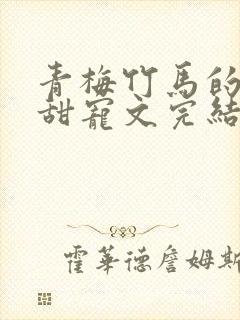 青梅竹馬的
甜寵文完結
霍華德詹姆斯